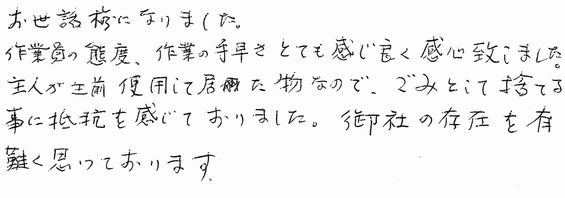 お世話様になりました。
作業員の態度、作業の手早さとても感じ良く感心致しました。
主人が生前使用して居た物なので、ごみとして捨てる
事に抵抗を感じておりました。御社の存在を有
難く思っております